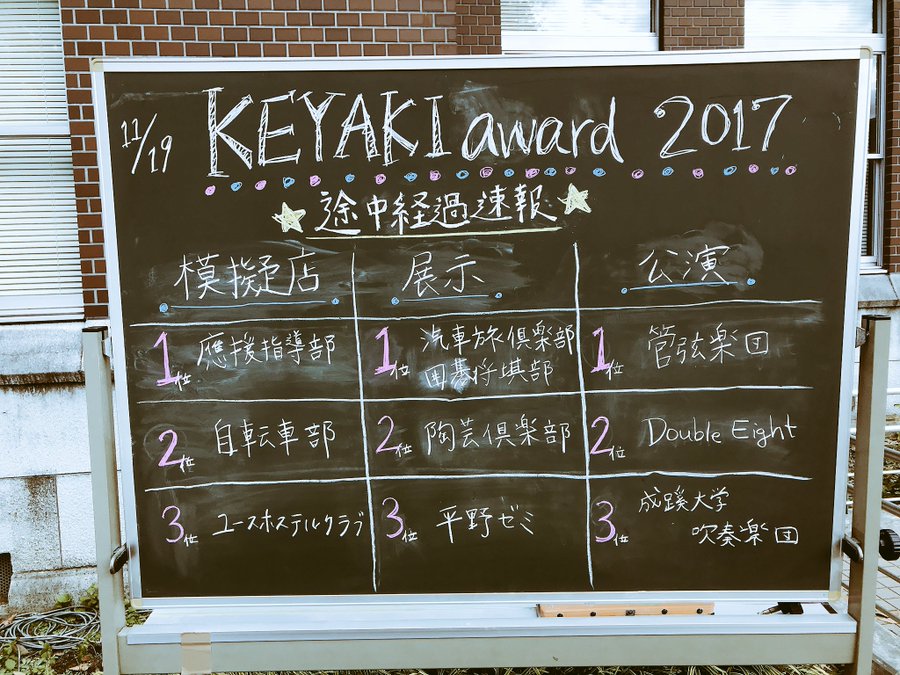 11/19 KEYAKI award 2017
途中経過速報
模擬店 展示 公演
1位 應援指導部
1位 汽車旅倶楽部
囲碁将棋部
1位 管弦楽団
2位 自転車部
2位 陶芸倶楽部
2位 Double Eight
3位 ユースホステルクラブ
3位 平野ゼミ
3位 成蹊大学
吹奏楽団